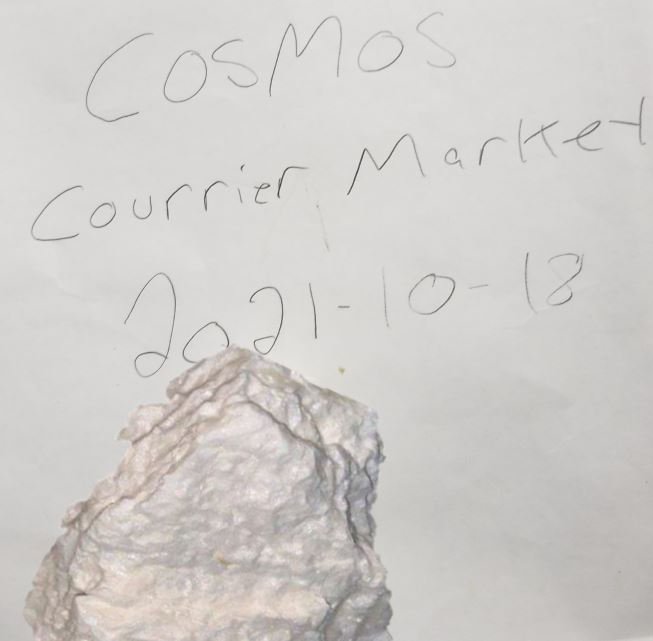 COSMOS
Courrier Market
2021-10-18